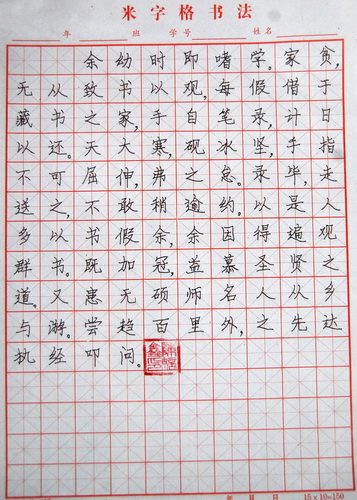 米字格书法
年 班 学号 姓名
余幼时即嗜学。家贫,
无从致书以观,每假借于
藏书之家,手自笔录,计日
以还。天大寒,砚冰坚,手指
不可屈伸,弗之怠。录毕,走
送之,不敢稍逾约。以是人
多以书假余,余因得遍观
群书。既加冠,益慕圣贤之
道。又患无硕师名人从乡
与游。尝趋百里外,之先达
执经叩问。
年 月 日 15×10=150